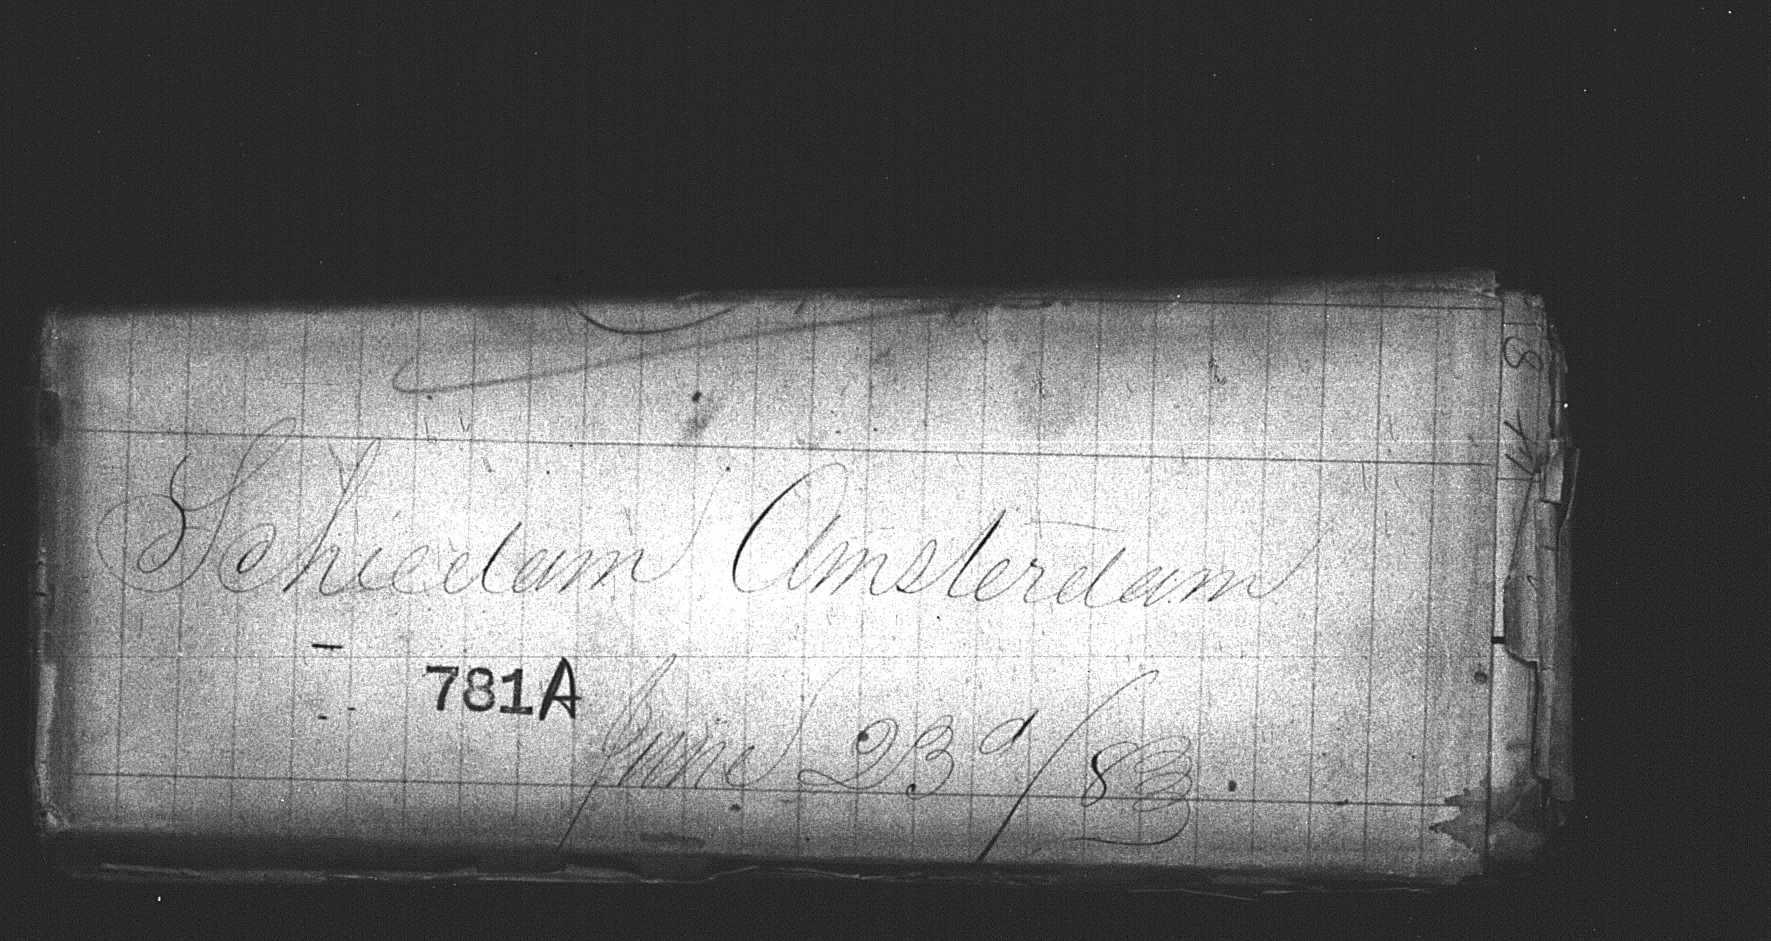 Schiedam Amsterdam
781A
June 23d/83